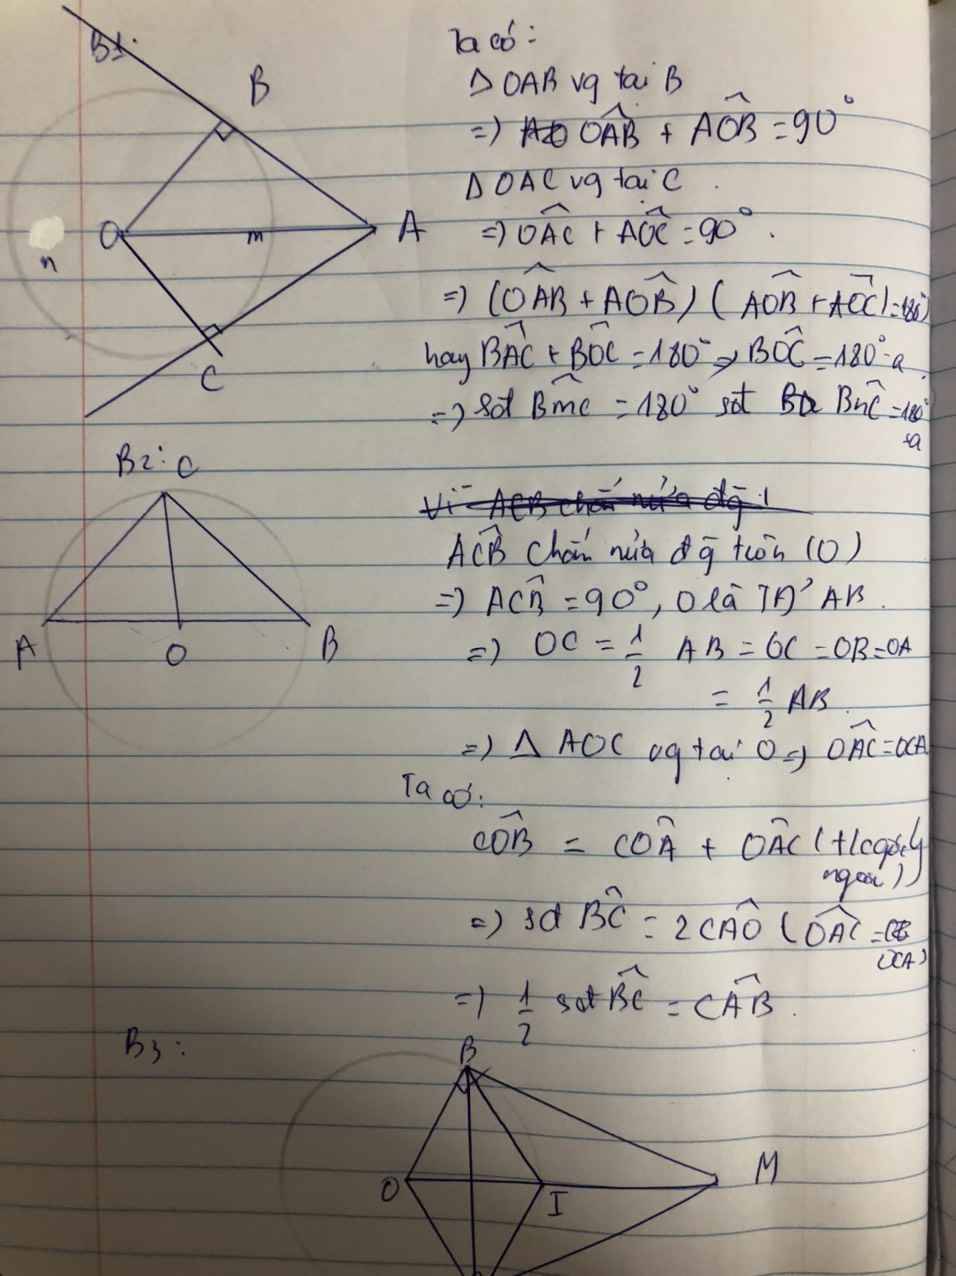 B1:
B
O
m
A
n
C
Ta có:
Δ OAB vg tại B
=) OAB + AOB = 90°
Δ OAC vg tại C.
=) OAC + AOC = 90°.
=) (OAB + AOB) (AOB + AOC) = 180°
hay BAC + BOC = 180° => BOC = 180° - a
=) sđt BmC = 180° sđt BnC = 180° + a
B2: C
A
O
B
Vì ACB chắn nửa đg t
ACB chắn nửa đg tròn (O)
=) ACB = 90°, O là TĐ' AB.
=) OC = 1/2 AB = OC = OB = OA
= 1/2 AB.
=) Δ AOC vg tại O => OAC = OCA
Ta có:
COB = COA + OAC (t/c góc
ngoài)
=) sđ BC = 2CAO (OAC =
OCA)
=) 1/2 sđt BC = CAB.
B3:
B
O
I
M